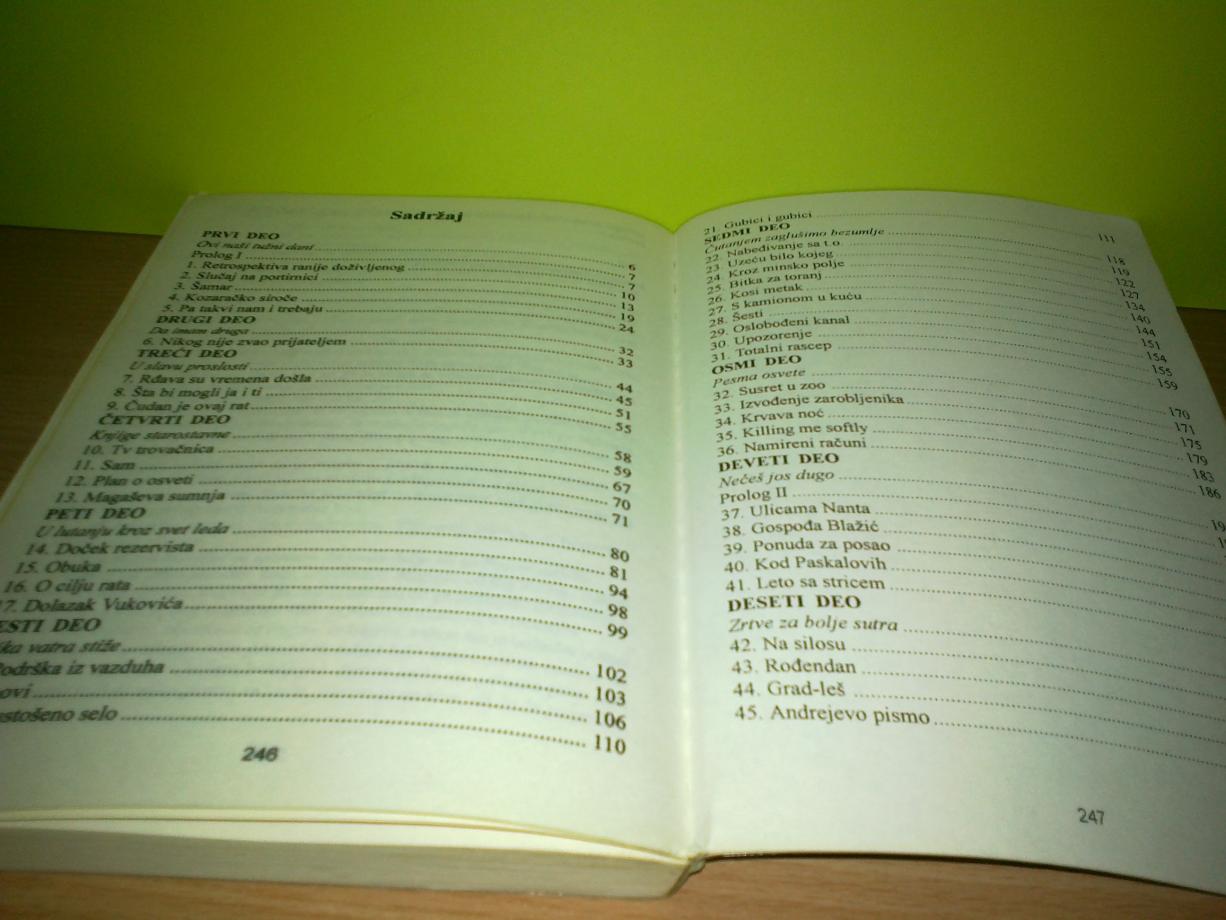 Sadržaj
PRVI DEO
Ovi naši tužni dani ... 6
Prolog I ... 7
1. Retrospektiva ranije doživljenog ... 7
2. Slučaj na portirnici ... 10
3. Šamar ... 13
4. Kozaračko siroče ... 19
5. Pa takvi nam i trebaju ... 24
DRUGI DEO
Da imam druga ... 32
6. Nikog nije zvao prijateljem ... 33
TREĆI DEO
U slavu proslosti ... 44
7. Rđava su vremena došla ... 45
8. Šta bi mogli ja i ti ... 51
9. Čudan je ovaj rat ... 55
ČETVRTI DEO
Knjige starostavne ... 58
10. Tv trovačnica ... 59
11. Sam ... 67
12. Plan o osveti ... 70
13. Magaševa sumnja ... 71
PETI DEO
U lutanju kroz svet leda ... 80
14. Doček rezervista ... 81
15. Obuka ... 94
16. O cilju rata ... 98
17. Dolazak Vukovića ... 99
ESTI DEO
vatra stiže ... 102
odrška iz vazduha ... 103
ovi ... 106
stošeno selo ... 110
246
21. Gubici i gubici ... 111
SEDMI DEO
Ćutanjem zaglušimo bezumlje ... 118
22. Nabeđivanje sa t.o. ... 119
23. Uzeću bilo kojeg ... 122
24. Kroz minsko polje ... 127
25. Bitka za toranj ... 134
26. Kosi metak ... 140
27. S kamionom u kuću ... 144
28. Šesti ... 151
29. Oslobođeni kanal ... 154
30. Upozorenje ... 155
31. Totalni rascep ... 159
OSMI DEO
Pesma osvete ... 170
32. Susret u zoo ... 171
33. Izvođenje zarobljenika ... 175
34. Krvava noć ... 179
35. Killing me softly ... 183
36. Namireni računi ... 186
DEVETI DEO
Nećeš jos dugo
Prolog II
37. Ulicama Nanta
38. Gospođa Blažić
39. Ponuda za posao
40. Kod Paskalovih
41. Leto sa stricem
DESETI DEO
Zrtve za bolje sutra
42. Na silosu
43. Rođendan
44. Grad-leš
45. Andrejevo pismo
247